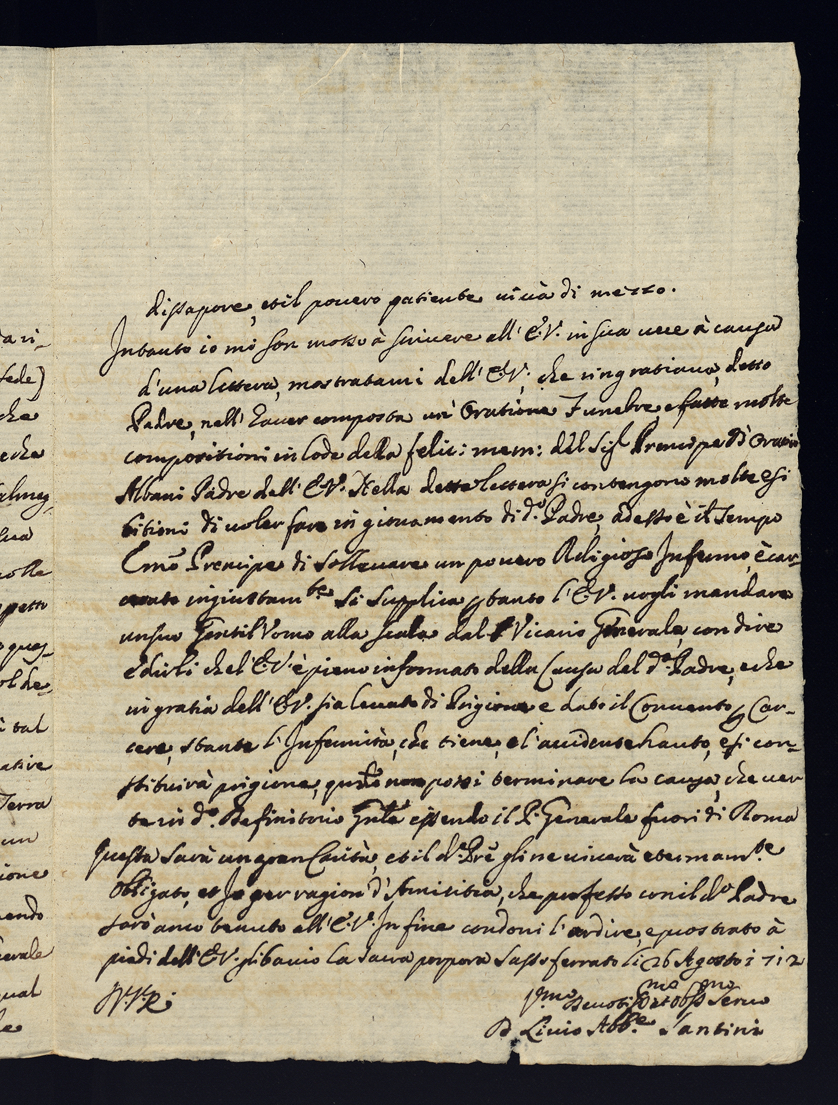 dissapore, et il povero patiente vivà di mezzo.
Intanto io mi son mosso à scrivere all' E.V. in sua vece à causa
d'una lettera, mostratami dell' E.V., che ringratiava, detto
Padre, nell' haver composta un' Oratione Funebre, e fatte molte
compositioni in lode della felic: mem: del Sig.r Prencipe D. Oratio
Albani Padre dell' E.V. Nella detta lettera si contengono molte esi
bitioni di voler fare in giovamento di d.o Padre, adesso è il tempo
Em̃o Prencipe di sollevare un povero Religioso Infermo, è car-
cerato ingiustam.te Si supplica p tanto l' E.V. vogli mandare
un suo Gentil'Vomo alla scala dal Vicario Generale, con dire
e dirli che l' E.V. è pieno informato della Causa del d.o Padre, e che
in gratia dell' E.V. sia levato di Prigione e dato il Convento p Car-
cere, stante l' Infermità, che tiene, e l'accidente hauto, e si con-
stituirà prigione, qũdo non possi terminare la causa, che ver
te in d.o Definitorio Gñle essendo il P. Generale fuori di Roma
Questa sarà un gran Carità, et il d.o Prẽ gli ne viverà eternam.te
obligato, et Io per ragion d'Amicitia, che professo con il d.o Padre
sarò anco tenuto all' E.V. In fine condoni l'ardire, e prostrato à
piedi dell' E.V. gli bacio la sacra porpora Sassoferrato li 26 Agosto 1712
D. V. E.
Vm̃o Devotis.mo et Obl.mo Servo
D. Livio Abb.e Santini
à ri-
fede)
che
e che
sua
molte
spetto
ques-
ol de-
à tal
ative
Terra
un
ione
endo
nerale
qual
le